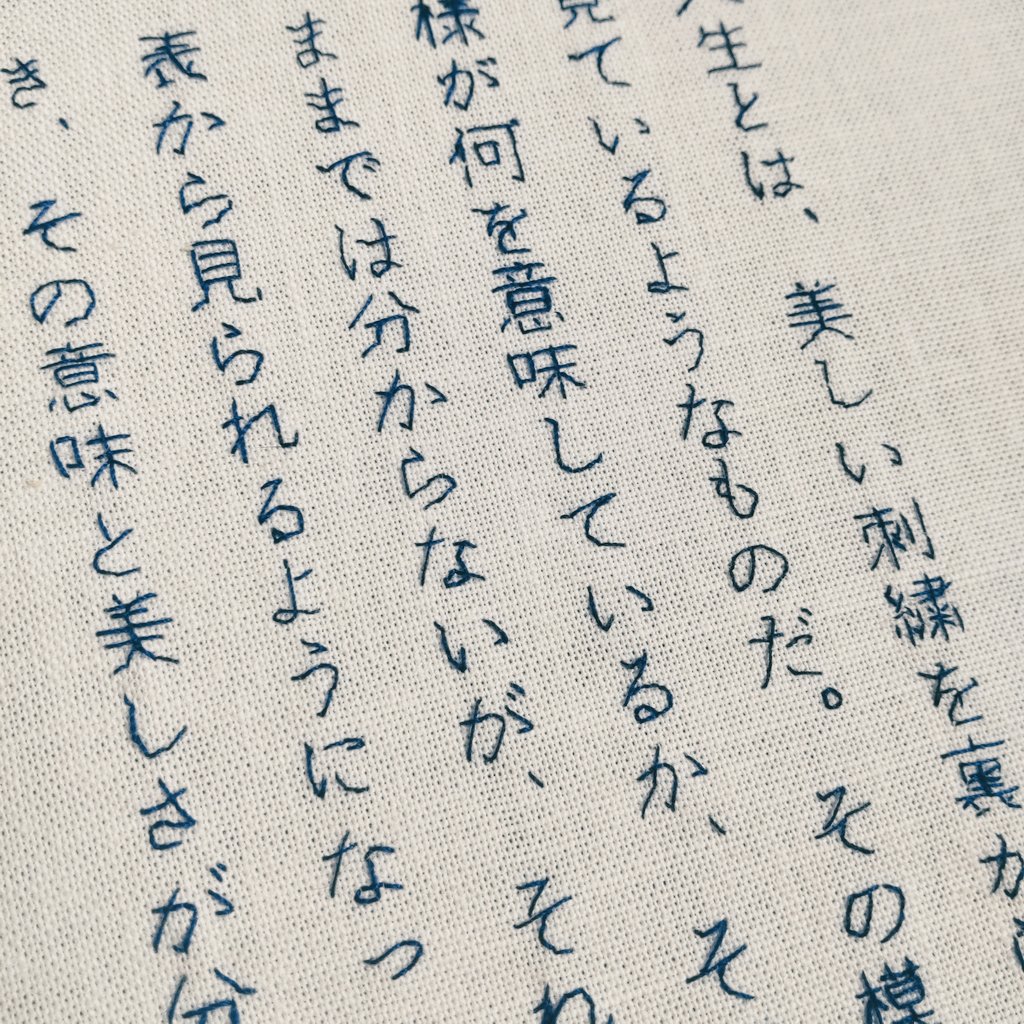 人生とは、美しい刺繍を裏か
見ているようなものだ。その模
様が何を意味しているか、そ
ままでは分からないが、それ
表から見られるようになっ
き、その意味と美しさが分